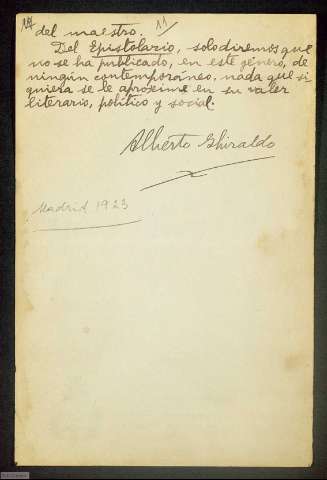 11/
del maestro.
Del Epistolario, solo diremos que
no se ha publicado, en este género, de
ningún contemporáneo, nada que si
quiera se le aproxime en su valer
literario, político y social.
Alberto Ghiraldo
Madrid 1923